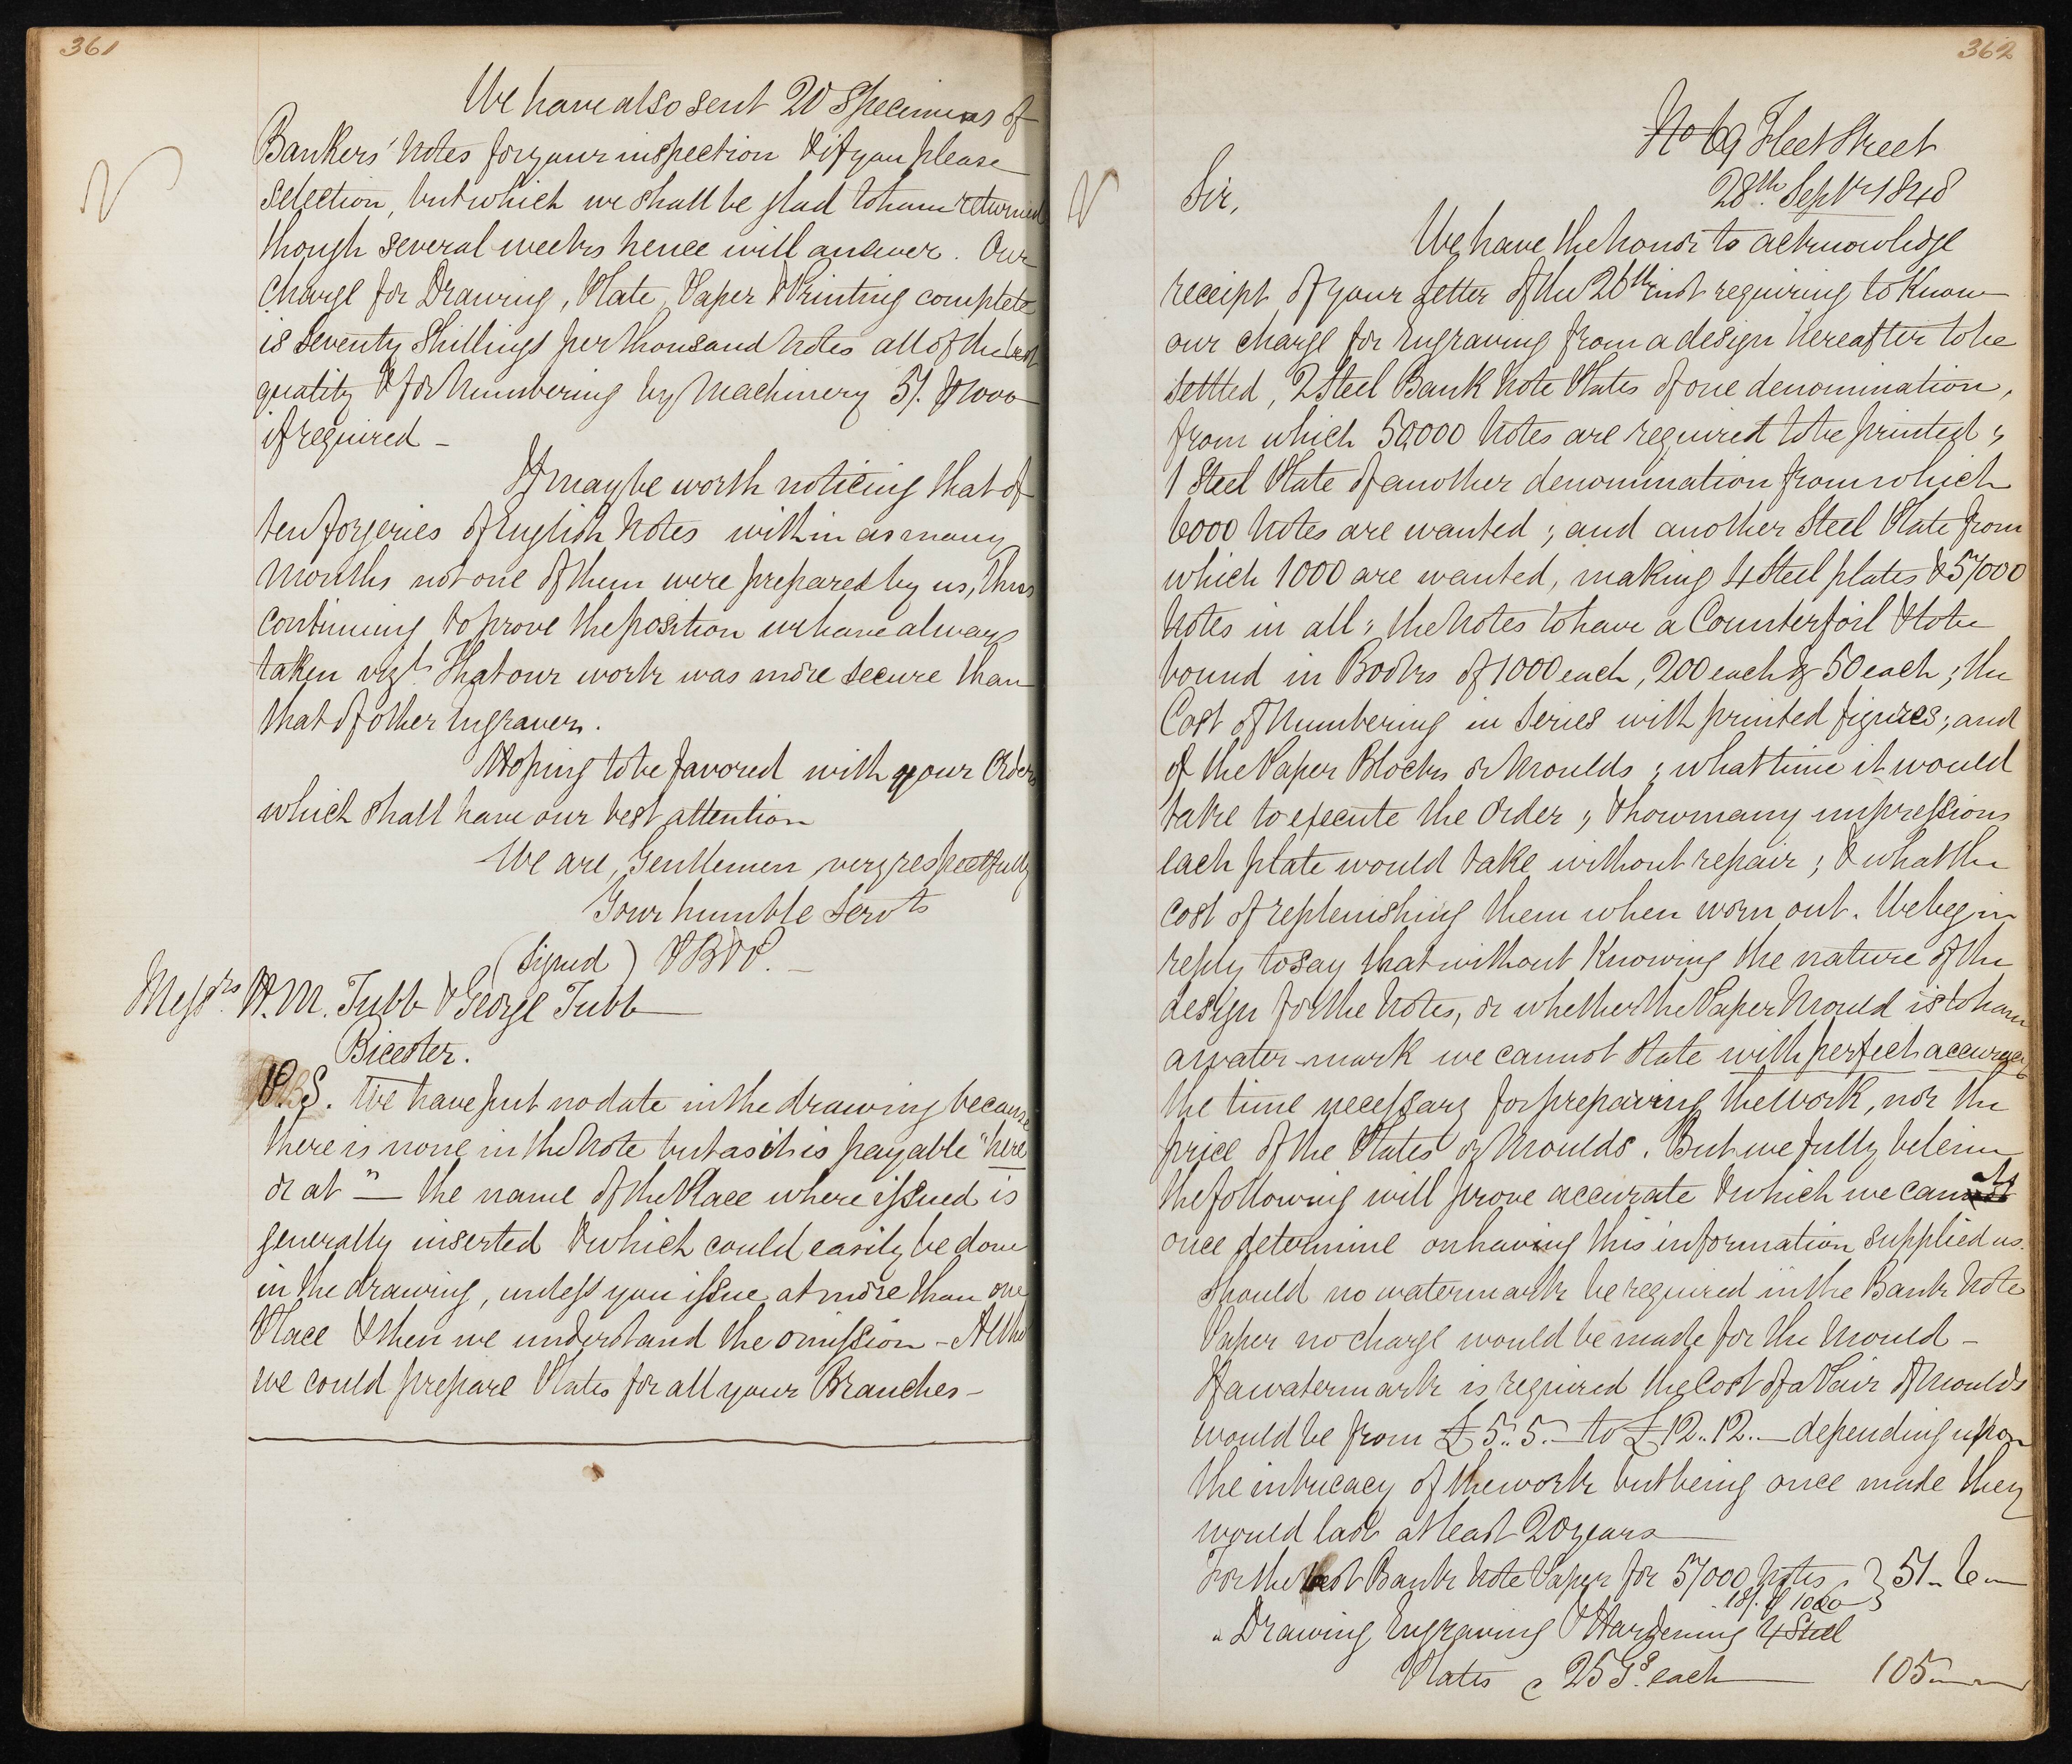 361
We have also sent 20 Specimens of
Bankers' Notes for your inspection & if you please
selection, but which we shall be glad to have returned
though several weeks hence will answer. Our
Charge for Drawing, Plate, Paper & Printing complete
is Seventy Shillings per thousand Notes all of the best
quality & for Numbering by Machinery 5/. ⅌ 1000
if required –
It may be worth noticing that of
ten forgeries of English Notes within as many
Months not one of them were prepared by us, thus
Continuing to prove the position we have always
taken vizt. That our work was more secure than
that of other Engravers.
Hoping to be favored with your Orders
which shall have our best attention
We are, Gentlemen very respectfully
Your humble Servts
(Signed) PB&P. –
Messrs. H. M. Tubb & George Tubb
Bicester.
P.S. We have put no date in the drawing because
there is none in the Note but as it is payable "here
or at" — the name of the Place where issued is
generally inserted & which could easily be done
in the drawing, unless you issue at more than one
Place & then we understand the omission – Altho
we could prepare Plates for all your Branches –
362
No 69 Fleet Street
28th. Septr 1848
Sir,
We have the honor to acknowledge
receipt of your Letter of the 26th inst requiring to Know
our charge for Engraving from a design hereafter to be
settled, 2 Steel Bank Note Plates of one denomination,
from which 50,000 Notes are required to be printed;
1 Steel Plate of another denomination from which
6000 Notes are wanted; and another Steel Plate from
which 1000 are wanted, making 4 Steel plates & 57000
Notes in all; the Notes to have a Counterfoil & to be
bound in Books of 1000 each, 200 each & 50 each; the
Cost of Numbering in Series with printed figures; and
of the Paper Blocks or Moulds; what time it would
take to execute the Order; & how many impressions
each plate would take without repair; & what the
cost of replenishing them when worn out. We beg in
reply to say that without Knowing the nature of the
design for the Notes, or whether the Paper Mould is to have
a water-mark we cannot state with perfect accuracy
the time necessary for preparing the work, nor the
price of the Plates or Moulds. But we fully believe
the following will prove accurate & which we can at
once determine on having this information supplied us.
Should no watermark be required in the Bank Note
Paper no charge would be made for the Mould –
If a watermark is required the Cost of a Pair of Moulds
would be from £5..5.— to £12..12.— depending upon
the intricacy of the work but being once made they
would last at least 20 years —
For the best Bank Note Paper for 57000 Notes } 51..6..—
18/. ⅌ 1000
" Drawing Engraving & Hardening 4 Steel
Plates @ 25 Gs. each — 105..—..—